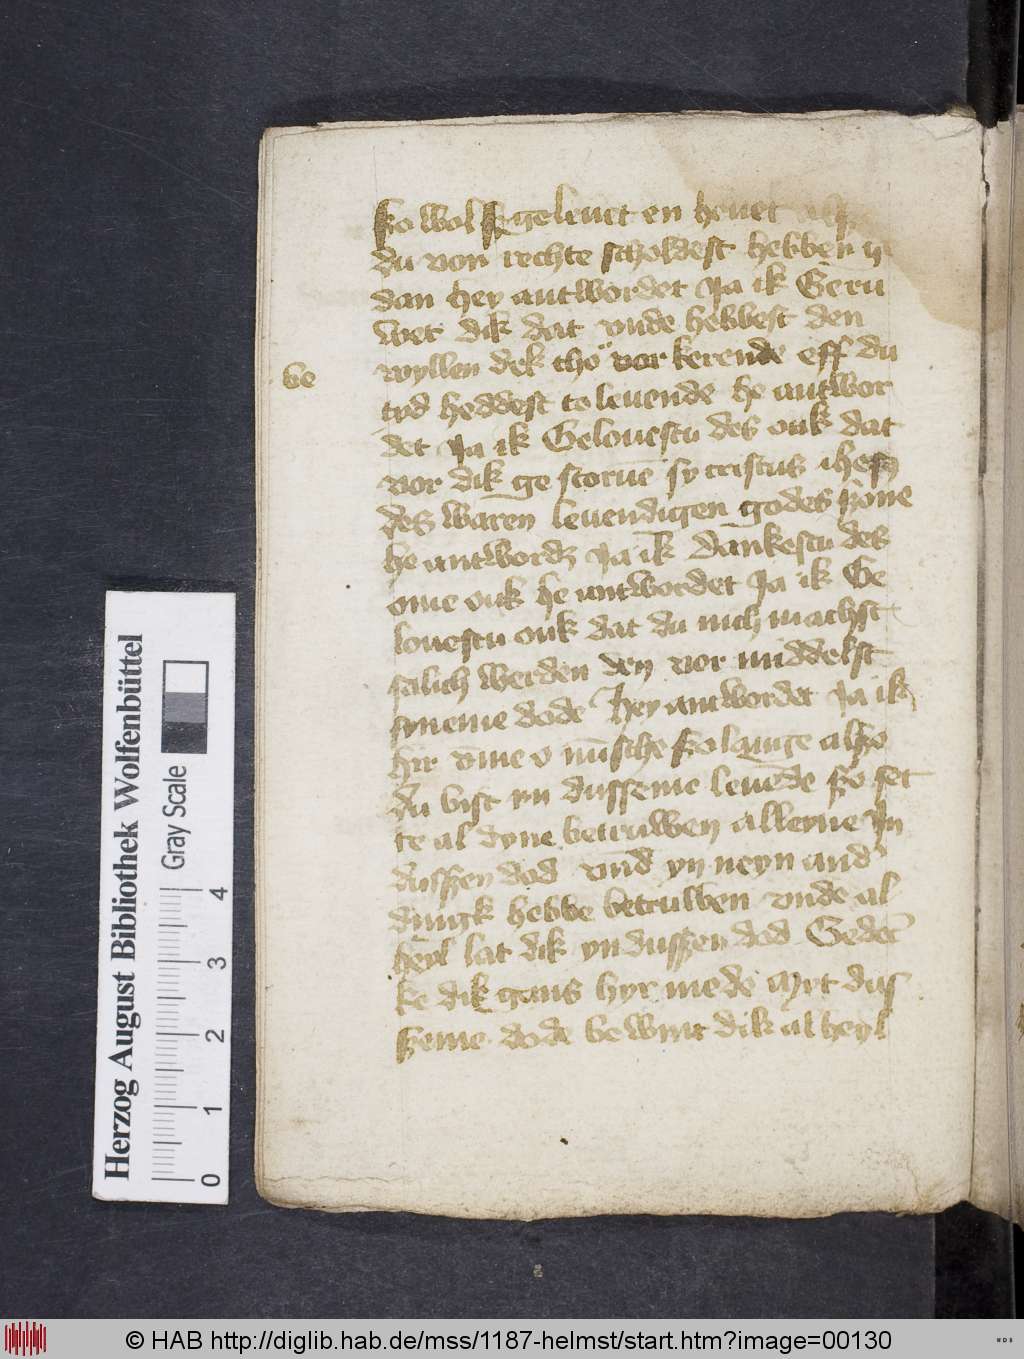 so wol geleuet en heuet
du von rechte scholdest hebben
dan hey antwordet Ja ik Geru
wet dik dat vnde hebbest den
wyllen dek tho vor kerende eff du
be
tyd heddest to leuende he antwor
det Ja ik Gelouestu des ouk dat
vor dik ge storuē sy cristus ihesꝫ
des waren leuendigen godes sone
he antwordꝫ Ja ik Dankestu des
ome ouk he antwordet Ja ik Ge
louestu ouk dat du nich machst
salich werden den vor middelst
syneme dode Hey antwordet Ja ik
hir vme o mīsche so lange also
du bist yn dusseme leuēde so set
te al dyne betruwen alleyne Jn
dussen dod vnd yn neyn and
dingk hebbe betruwen vnde al
heyl lat dik yn dussen dod Gedec
ke dik gans hyr mede Myt dus
seme dode be wynt dik al heyl
Herzog August Bibliothek Wolfenbüttel
Gray Scale
0 1 2 3 4
© HAB http://diglib.hab.de/mss/1187-helmst/start.htm?image=00130
WDB